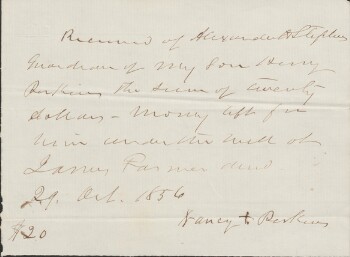 Received of Alexander H Stephens
Guardian of my son Henry
Perkins the sum of twenty
dollars - Money left for
him under the will of
James Farmer decd
29 Oct. 1856
Nancy + Perkins
$20